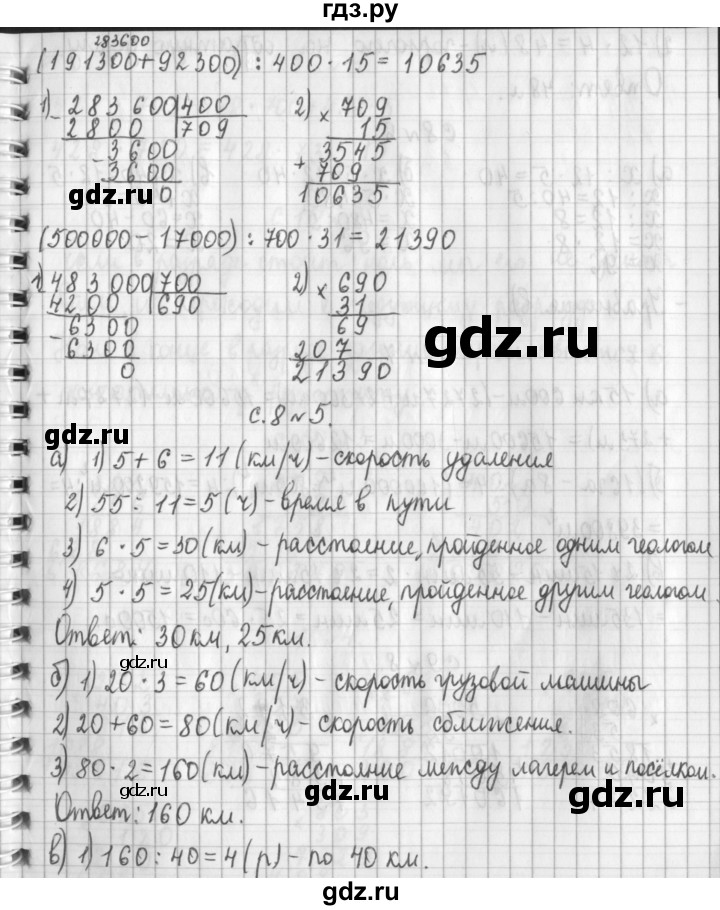 гдз.ру
283600
(191300+92300) : 400 · 15 = 10635
1) 283600 | 400 2) × 709
2800 | 709 15
- 3600 3545
3600 + 709
0 10635
gdz.ru
(500000 - 17000) : 700 · 31 = 21390
1) 483000 | 700 2) × 690
4200 | 690 31
- 6300 69
6300 207
0 21390
gdz.ru
с. 8 № 5.
а) 1) 5 + 6 = 11 (км/ч) - скорость удаления
2) 55 : 11 = 5 (ч) - время в пути
3) 6 · 5 = 30 (км) - расстояние, пройденное одним геологом
4) 5 · 5 = 25 (км) - расстояние, пройденное другим геологом.
Ответ: 30 км, 25 км.
gdz.ru
б) 1) 20 · 3 = 60 (км/ч) - скорость грузовой машины
2) 20 + 60 = 80 (км/ч) - скорость сближения.
3) 80 · 2 = 160 (км) - расстояние между лагерем и посёлком.
gdz.ru
gdz.ru
Ответ: 160 км.
в) 1) 160 : 40 = 4 (р) - по 40 км.
gdz.ru